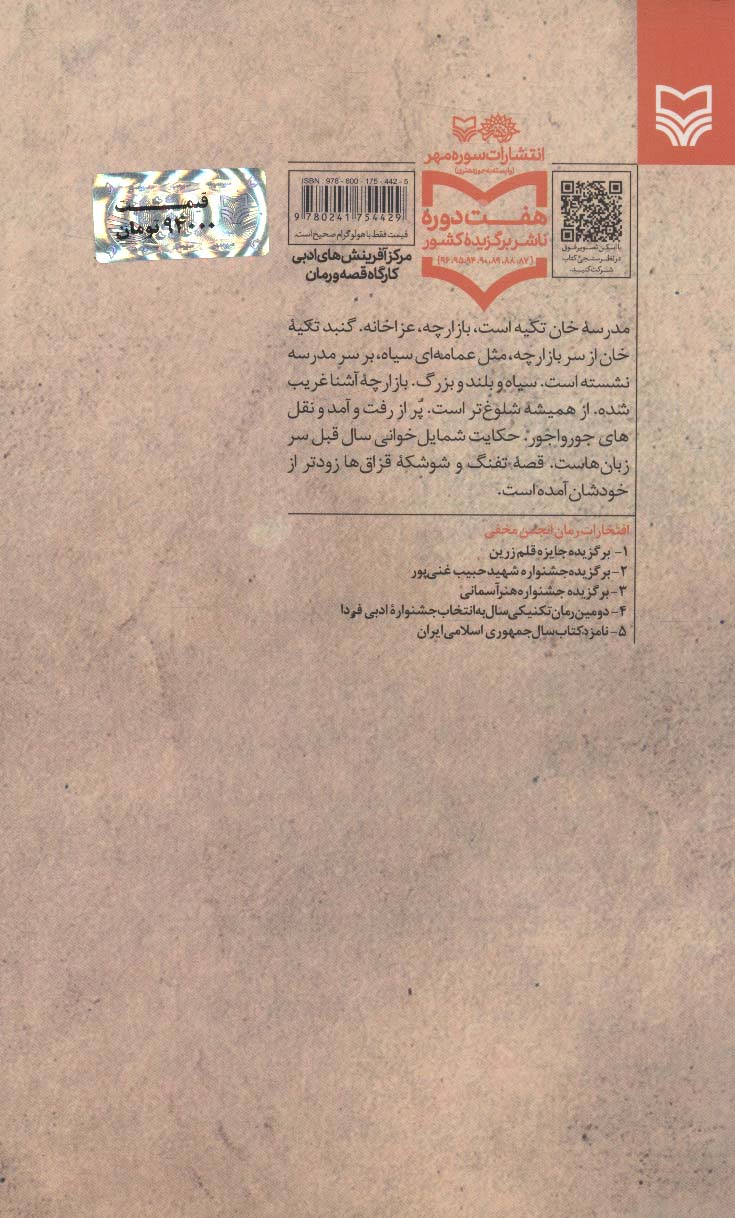 انتشارات سوره مهر
(وابسته به حوزه هنری)
هفت دورهٔ
ناشر برگزیدهٔ کشور
{۹۶،۹۵،۹۴،۹۰،۸۹،۸۸،۸۷}
با اسکن تصویر فوق
در نظرسنجی کتاب
شرکت کنید.
ISBN: 978-600-175-442-5
9 780241 754429
قیمت فقط با هولوگرام صحیح است.
مرکز آفرینش‌های ادبی
کارگاه قصه و رمان
قیمت
۹۴۰۰۰ تومان
مدرسهٔ خان تکیه است، بازارچه، عزاخانه. گنبد تکیهٔ
خان از سر بازارچه، مثل عمامه‌ای سیاه، بر سر مدرسه
نشسته است. سیاه و بلند و بزرگ. بازارچهٔ آشنا غریب
شده. از همیشه شلوغ‌تر است. پُر از رفت و آمد و نقل
های جورواجور. حکایت شمایل‌خوانی سال قبل سر
زبان‌هاست. قصهٔ تفنگ و شوشکهٔ قزاق‌ها زودتر از
خودشان آمده است.
افتخارات رمان انجمن مخفی
۱- برگزیده جایزه قلم زرین
۲- برگزیده جشنواره شهید حبیب غنی‌پور
۳- برگزیده جشنواره هنر آسمانی
۴- دومین رمان تکنیکی سال به انتخاب جشنوارهٔ ادبی فردا
۵- نامزد کتاب سال جمهوری اسلامی ایران